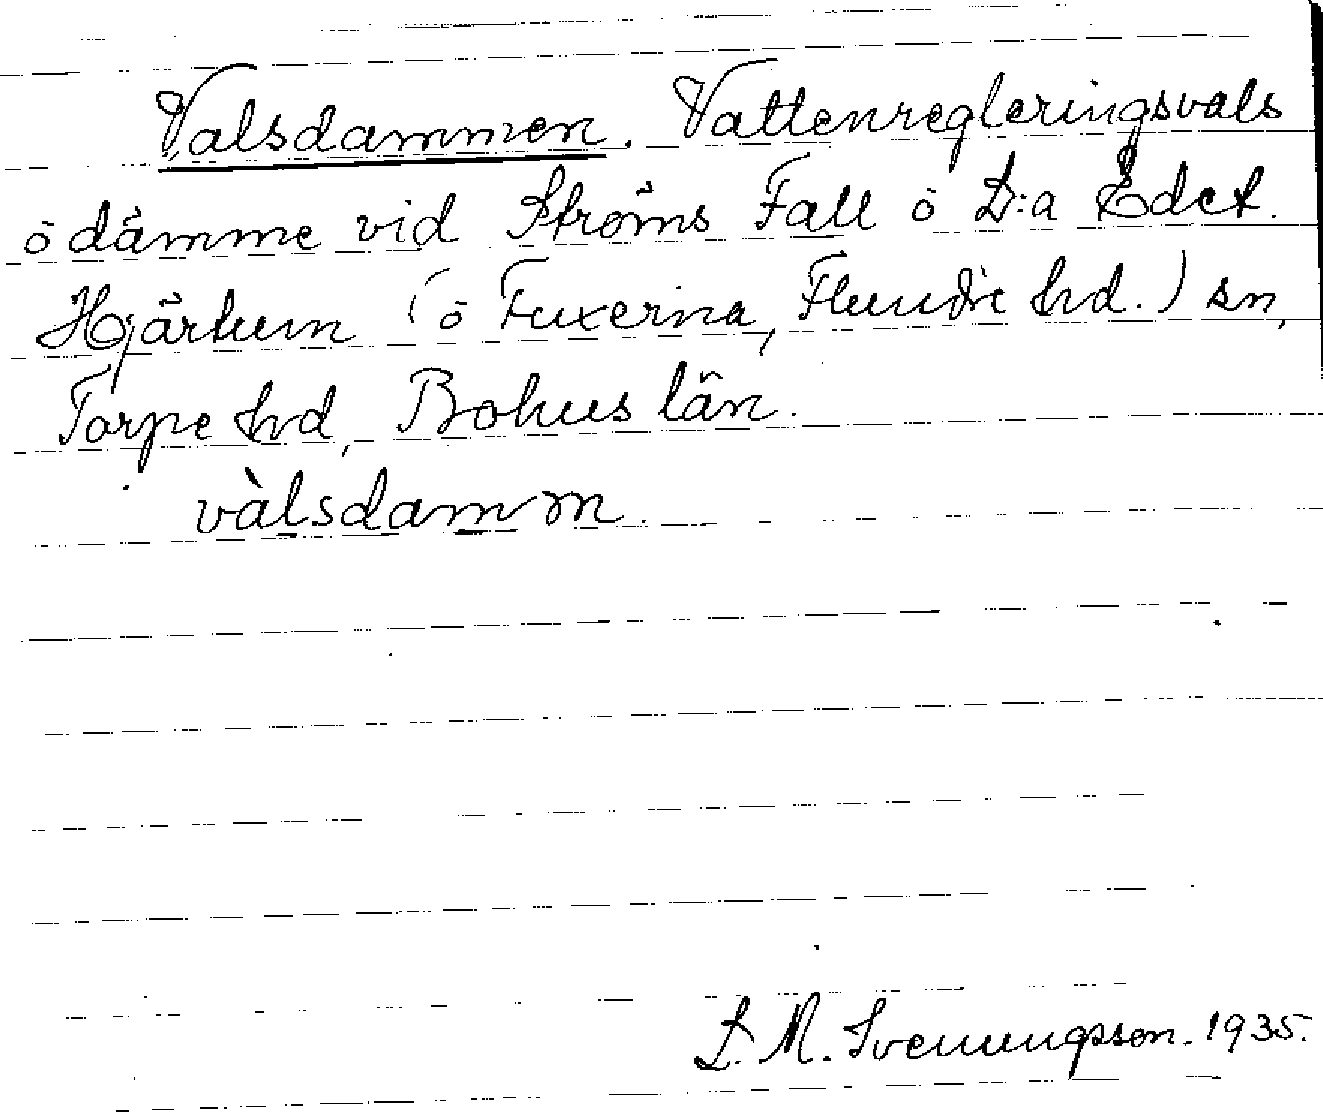 Valsdammen. Vattenregleringsvals
o dämme vid Ströms Fall o L:a Edet.
Hjärtum (o Fuxerna, Flundre hd.) sn,
Torpe hd, Bohus län.
vàlsdamm
L. M. Svenungsson. 1935.